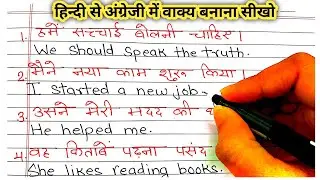 हिन्दी से अंग्रेजी में वाक्य बनाना सीखो
1. हमें सच्चाई बोलनी चाहिए।
We should speak the truth.
2. मैंने नया काम शुरू किया।
I started a new job.
3. उसने मेरी मदद की
He helped me.
4. वह किताबें पढ़ना पसंद
She likes reading books.